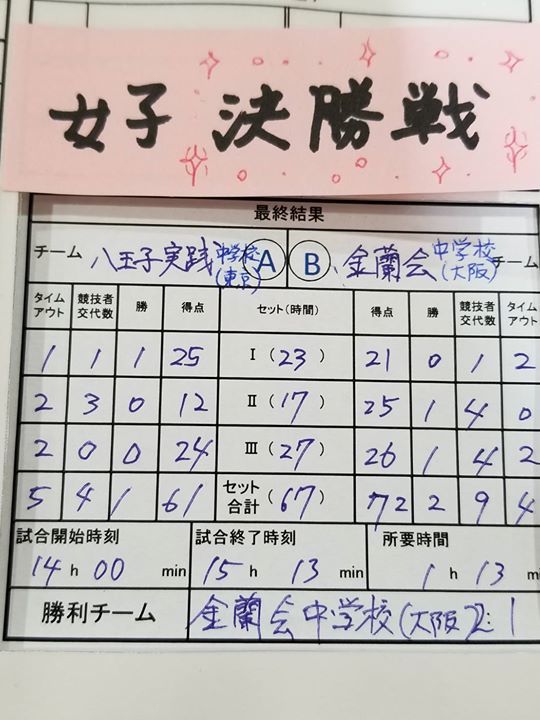 女子 決勝戦
最終結果
チーム 八王子実践中学校(東京) A B 金蘭会中学校(大阪) チーム
タイムアウト 競技者交代数 勝 得点 セット(時間) 得点 勝 競技者交代数 タイムアウト
1 1 1 25 Ⅰ(23) 21 0 1 2
2 3 0 12 Ⅱ(17) 25 1 4 0
2 0 0 24 Ⅲ(27) 26 1 4 2
5 4 1 61 セット合計(67) 72 2 9 4
試合開始時刻 試合終了時刻 所要時間
14 h 00 min 15 h 13 min 1 h 13 mi
勝利チーム 金蘭会中学校(大阪) 2:1